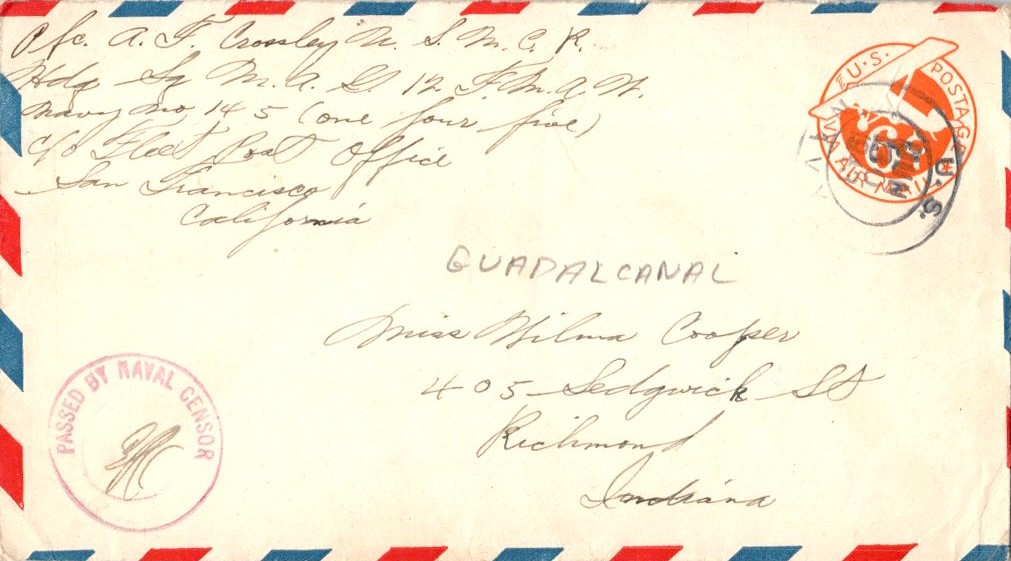 Pfc. A. F. Crossley U. S. M. C. R.
Hdq Sq M. A. G. 12. F. M. A. W.
Navy No 145 (one four five)
C/o Fleet Post Office
San Francisco
California
U.S. POSTAGE
6¢
AIR MAIL
U.S.
GUADALCANAL
Miss Wilma Cooper
405 Sedgwick St
Richmond
Indiana
PASSED BY NAVAL CENSOR